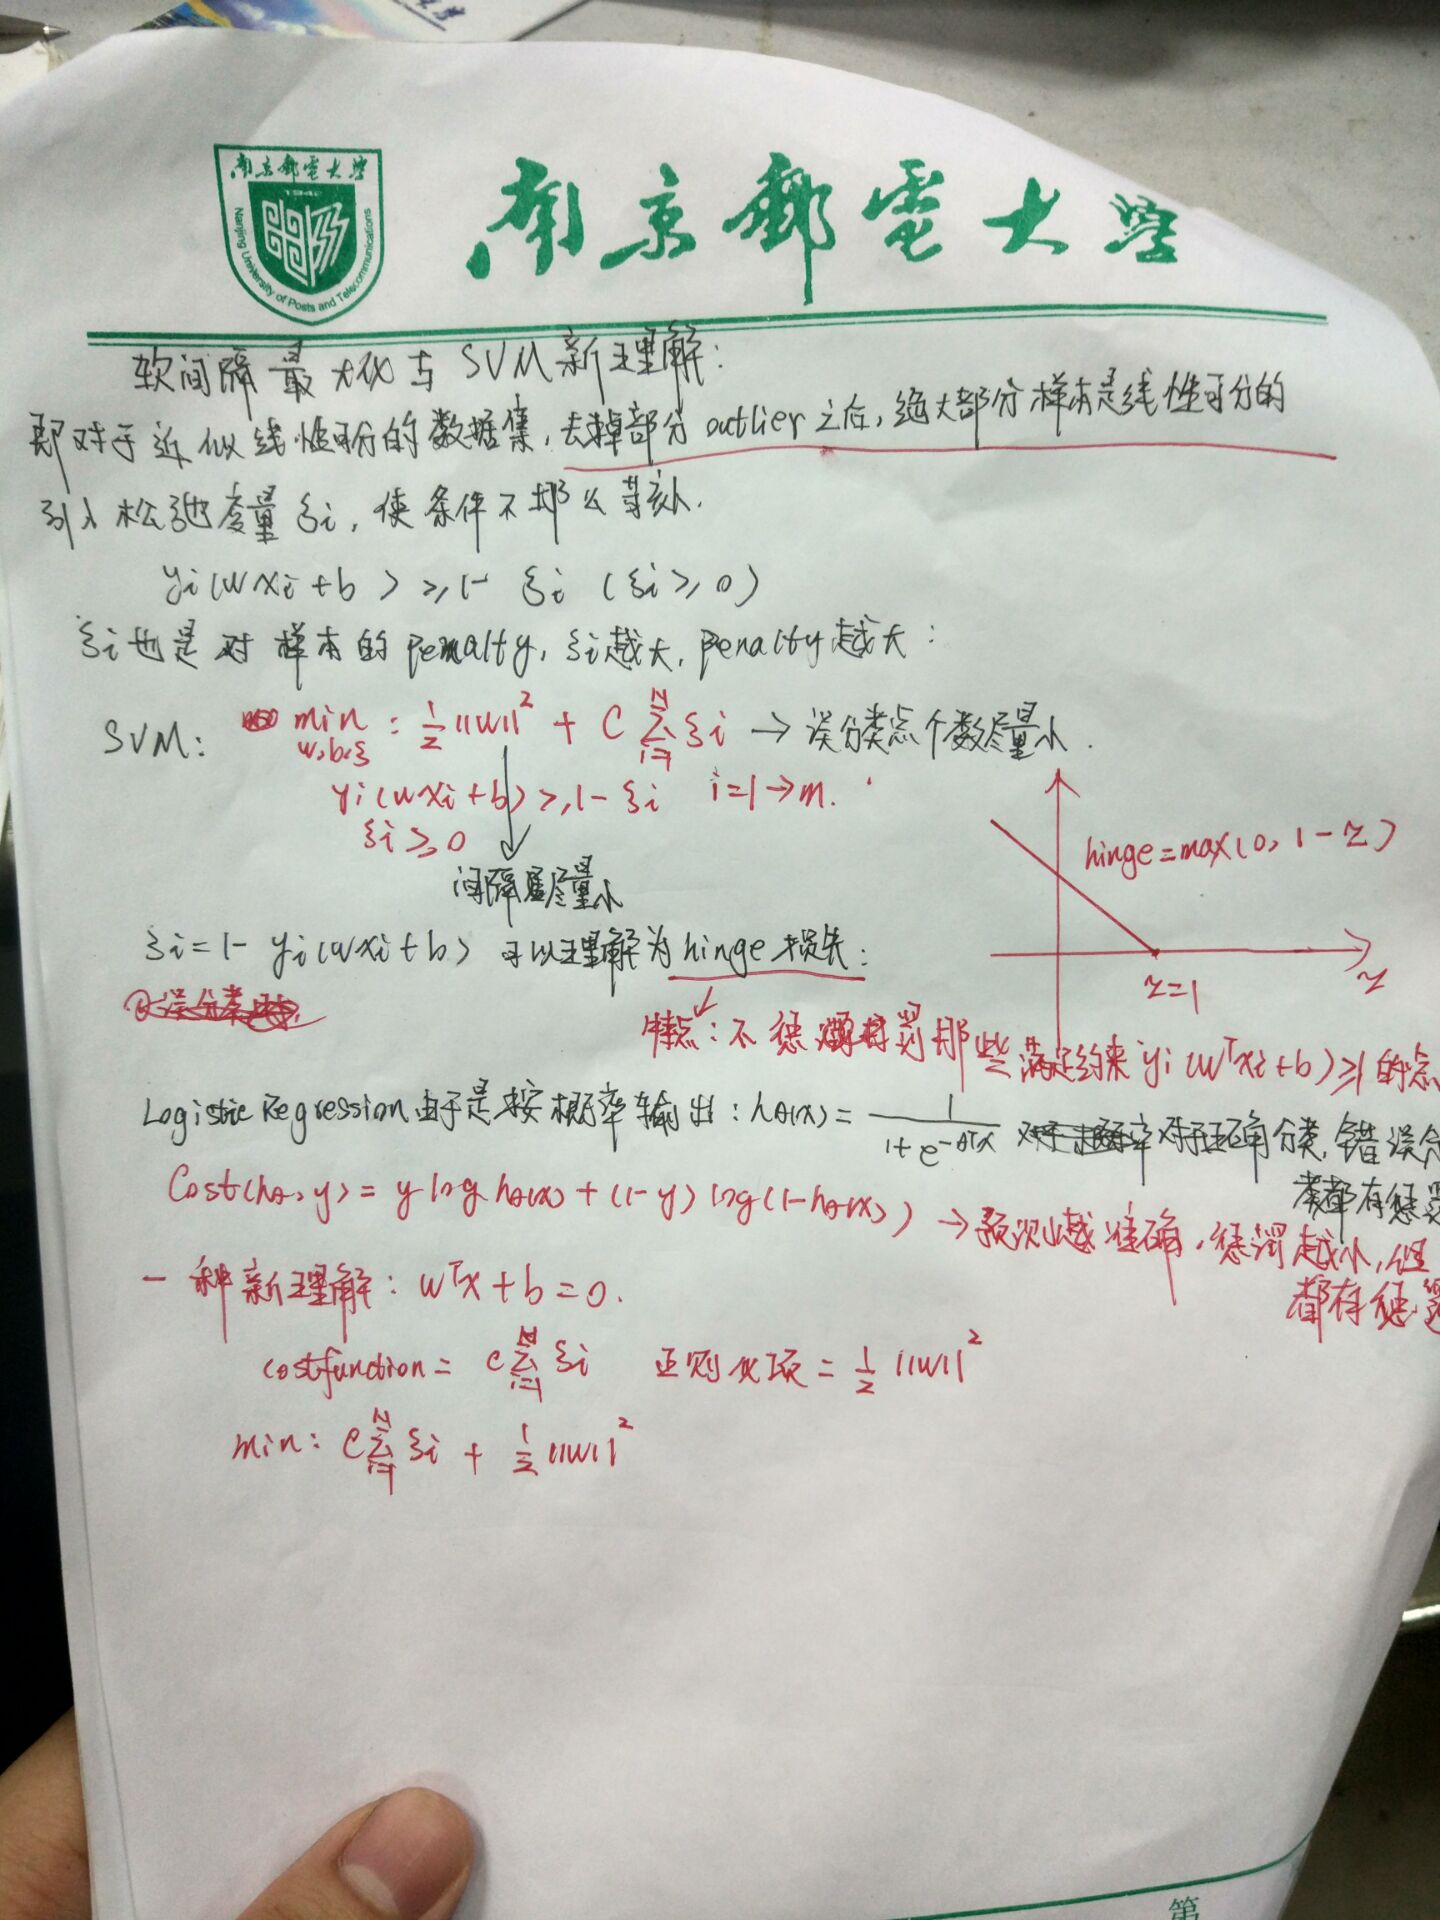 南京郵電大學
1942
Nanjing University of Posts and Telecommunications
南京郵電大學
软间隔最大化与SVM新理解:
即对于近似线性可分的数据集,去掉部分outlier之后,绝大部分样本是线性可分的
引入松弛变量ξi,使条件不那么苛刻.
yi(wxi+b)≥1-ξi (ξi≥0)
ξi也是对样本的penalty,ξi越大,penalty越大:
SVM: min : 1/2||w||² + C Σ ξi → 误分类点个数尽量小.
w,b,ξ
i=1
N
yi(wxi+b)≥1-ξi i=1→m.
ξi≥0
间隔尽量小
hinge=max(0,1-z)
z=1
z
ξi=1-yi(wxi+b) 可以理解为hinge损失:
特点:不惩罚那些满足约束yi(wᵀxi+b)≥1的点
Logistic Regression由于是按概率输出: hθ(x)= 1/(1+e^-θᵀx) 对于正确分类,错误分
类都有惩罚
Cost(hθ,y)=y log hθ(x)+(1-y) log(1-hθ(x)) → 预测越准确,惩罚越小,但
都有惩罚
一种新理解: wᵀx+b=0.
costfunction= C Σ(i=1,N) ξi 正则化项= 1/2||w||²
min: C Σ(i=1,N) ξi + 1/2||w||²
第